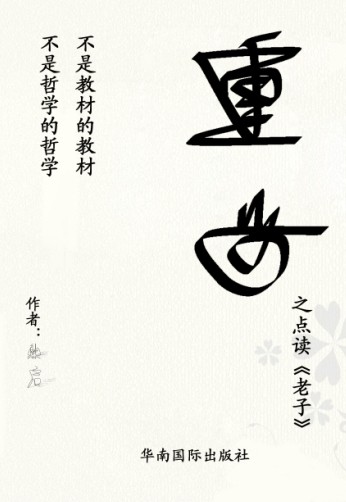 重
之点读《老子》
不是教材的教材
不是哲学的哲学
作者：
华南国际出版社